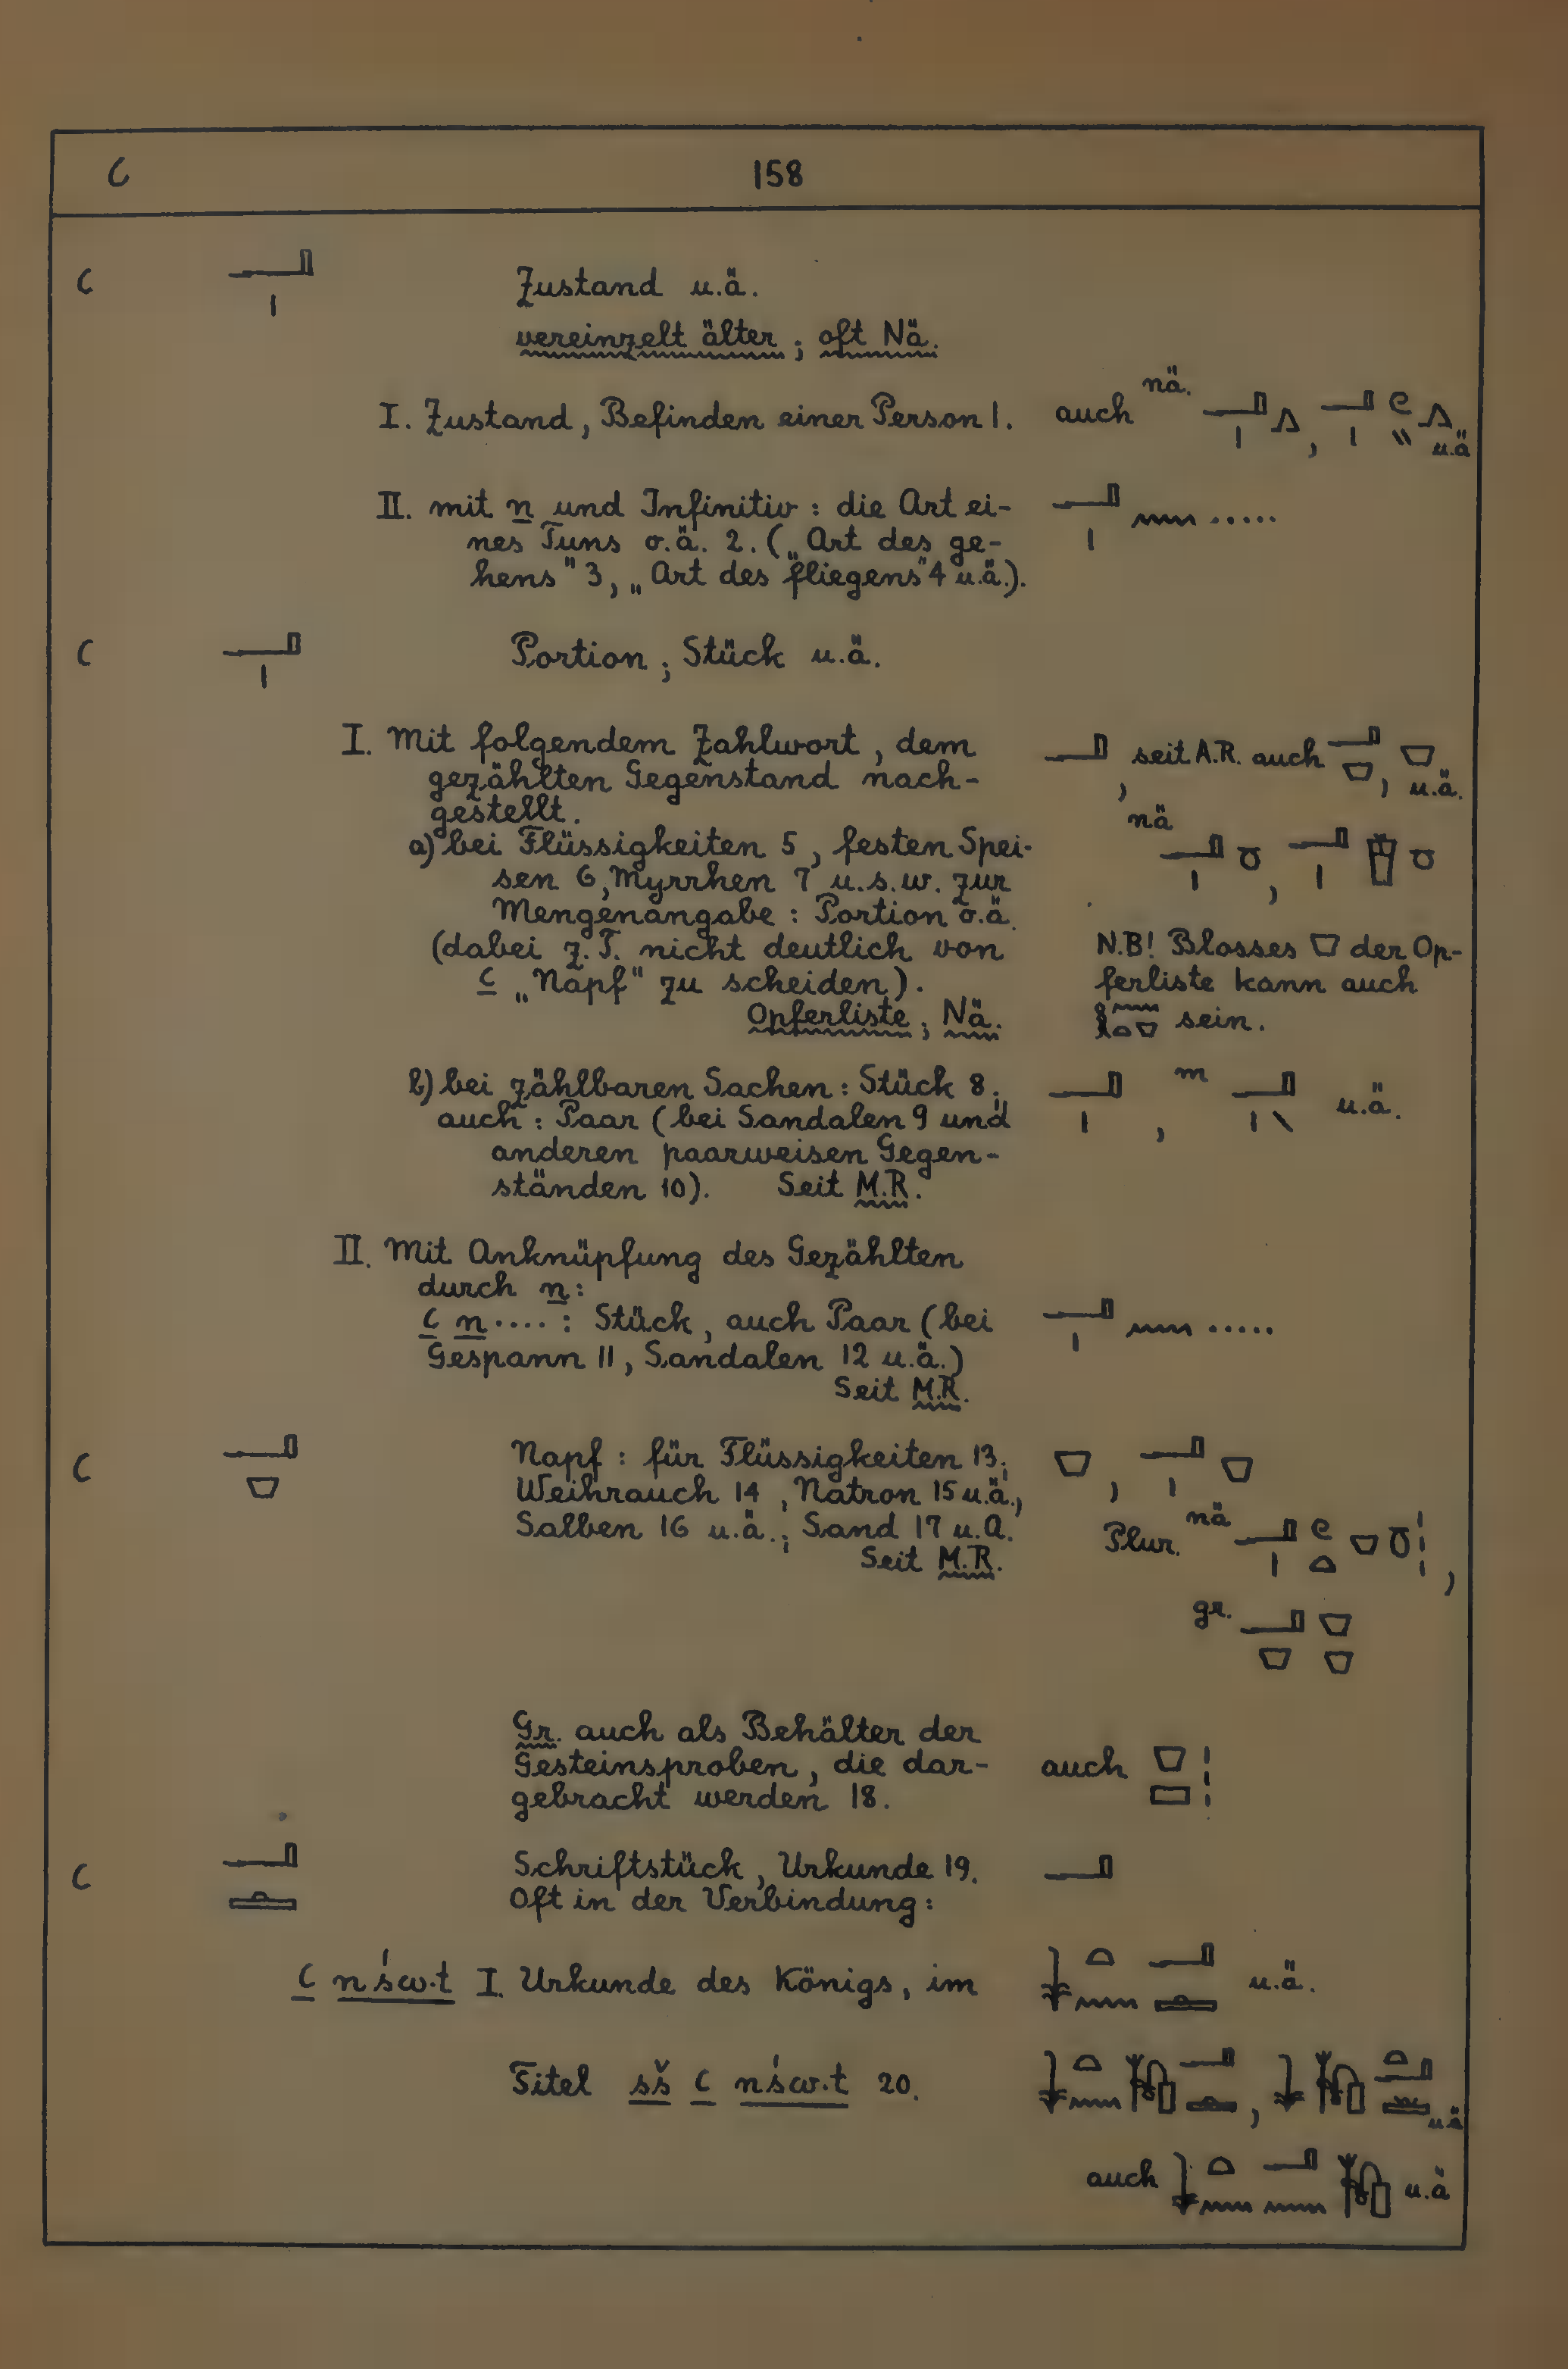 ꜥ 158
ꜥ Zustand u.ä.
vereinzelt älter; oft Nä.
I. Zustand, Befinden einer Person 1. auch nä. , u.ä
II. mit n und Infinitiv: die Art ei- .....
nes Tuns o.ä. 2. („Art des ge-
hens" 3, „Art des fliegens" 4 u.ä.).
ꜥ Portion; Stück u.ä.
I. Mit folgendem Zahlwort, dem , seit A.R. auch , u.ä.
gezählten Gegenstand nach-
gestellt.
nä ,
a) bei Flüssigkeiten 5, festen Spei-
sen 6, Myrrhen 7 u.s.w. zur
Mengenangabe: Portion o.ä.
(dabei z.T. nicht deutlich von
ꜥ „Napf" zu scheiden).
Opferliste; Nä.
N.B! Blosses der Op-
ferliste kann auch
sein.
b) bei zählbaren Sachen: Stück 8; , m u.ä.
auch: Paar (bei Sandalen 9 und
anderen paarweisen Gegen-
ständen 10). Seit M.R.
II. Mit Anknüpfung des Gezählten
durch n:
ꜥ n....: Stück, auch Paar (bei .....
Gespann 11, Sandalen 12 u.ä.)
Seit M.R.
ꜥ Napf: für Flüssigkeiten 13; ,
Weihrauch 14, Natron 15 u.ä.,
Salben 16 u.ä.; Sand 17 u.A.
Seit M.R.
Plur. nä ,
gr.
Gr. auch als Behälter der
Gesteinsproben, die dar- auch
gebracht werden 18.
ꜥ Schriftstück, Urkunde 19.
Oft in der Verbindung:
ꜥ nśw.t I. Urkunde des Königs, im u.ä.
Titel sš ꜥ nśw.t 20. , u.ä
auch u.ä